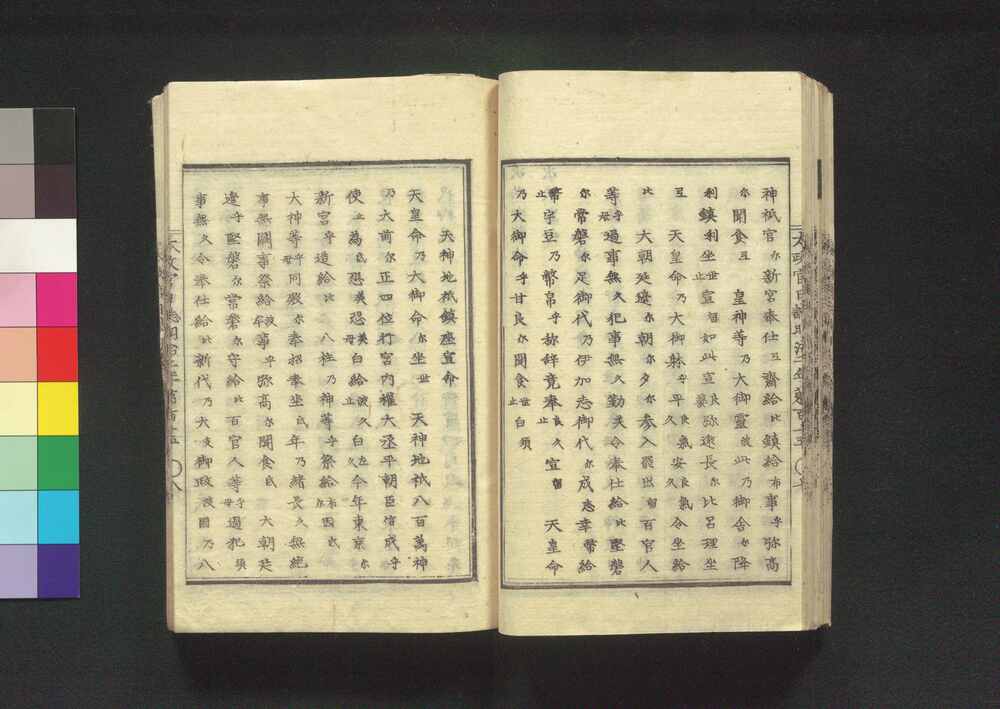 神祇官尓新宮奉仕弖齋給比鎮給布事乎弥高
尓聞食弖　皇神等乃大御靈波此乃御舍尓降
利鎮利坐世止宣留如此宣良婆弥遠長尓比呂理坐
弖　天皇命乃大御躰乎平良氣久安良氣久令坐給
比　大朝廷邊尓朝尓夕尓参入罷出留百官人
等乎母過事無久犯事無久勤美令奉仕給比堅磐
尓常磐尓足御代乃伊加志御代尓成志幸幣給
幣止宇豆乃幣帛乎称辞竟奉良久止宣留　天皇命
乃大御命乎甘良尓聞食世止白須
天神地祇鎮座宣命
天皇命乃大御命尓坐世　天神地祇八百萬神
乃大前尓正四位行宮内權大丞平朝臣信成乎
使止為弖恐美恐美母白給波久止白左久今年東京尓
新宮乎造給比　八柱乃神等乎祭給布尓因弖
大神等乎母同殿尓奉招奉坐弖年乃緒長久無絶
事無闕事祭給波牟等乎弥高尓聞食弖　大朝廷
邊乎堅磐尓常磐尓守給比百官人等乎母過犯須
事無久令奉仕給比新代乃大御政波國乃八